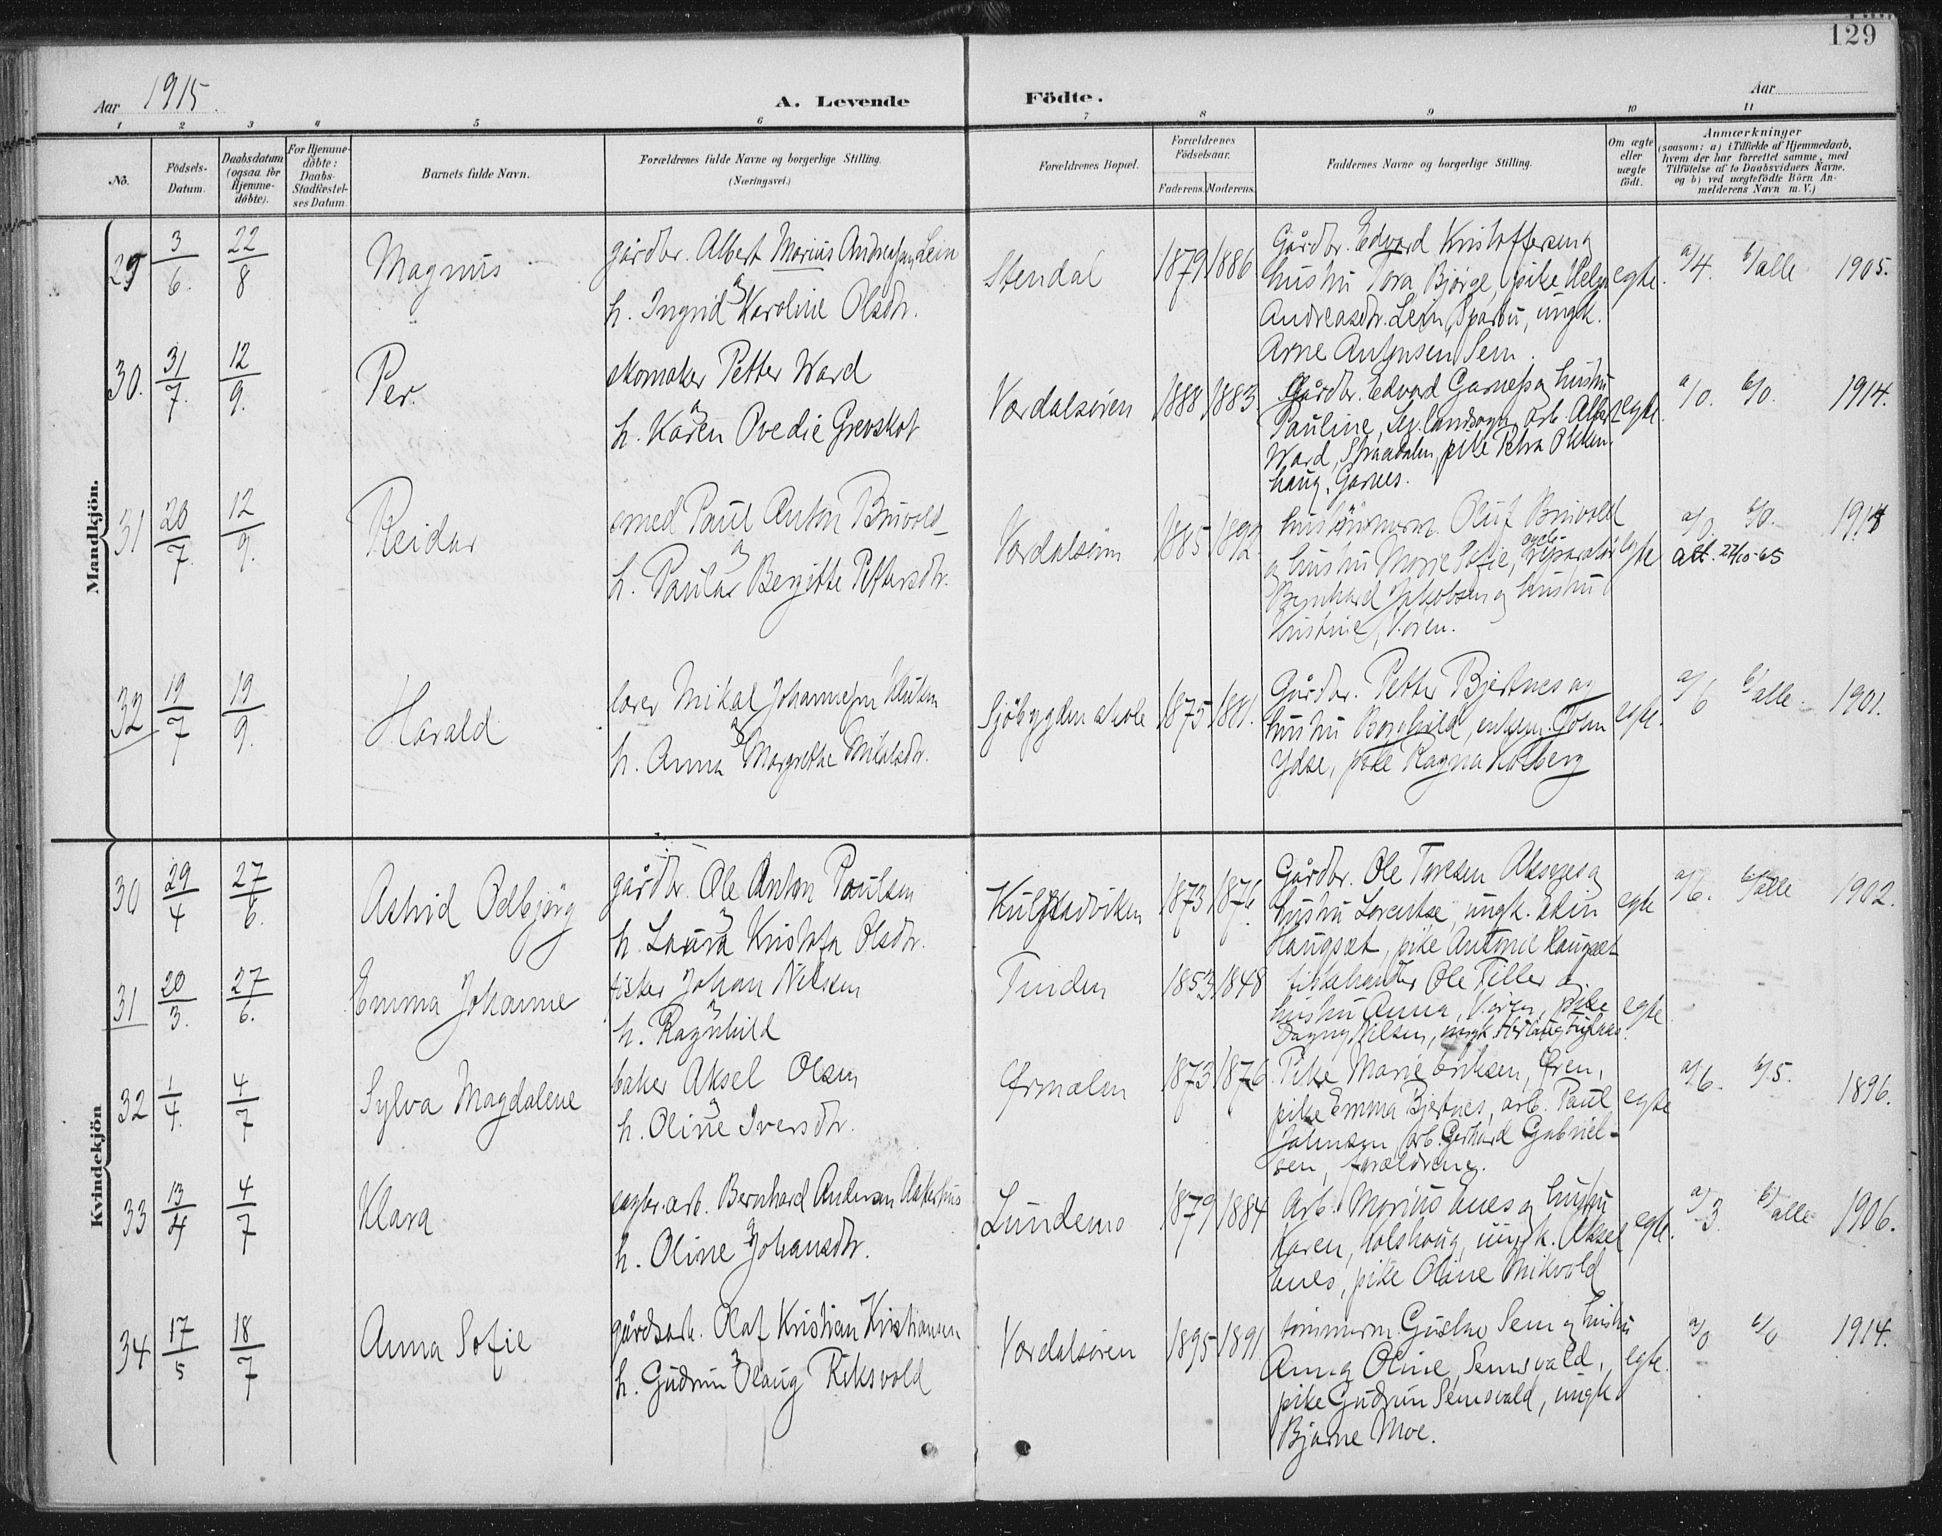 129
Aar 1915.
A. Levende Födte.
Aar
1 2 3 4 5 6 7 8 9 10 11
No.
Födsels-
Datum.
Daabsdatum
(ogsaa for
Hjemme-
döbte).
For Hjemme-
döbte:
Daabs-
Stadfestel-
ses Datum.
Barnets fulde Navn.
Forældrenes fulde Navne og borgerlige Stilling.
(Næringsvei.)
Forældrenes Bopæl.
Forældrenes
Födselsaar.
Faderens. Moderens.
Faddernes Navne og borgerlige Stilling.
Om ægte
eller
uægte
födt.
Anmærkninger
(saasom: a) i Tilfælde af Hjemmedaab,
hvem der har forrettet samme, med
Tilföielse af to Daabsvidners Navne.
og b) ved uægtefödte Börn An-
melderens Navn m. V.)
Mandkjön.
29 3/6. 22/8 Magnus
gårdbr. Albert Marius Andreassen Lein
h. Ingrid Karoline Olsdtr.
Stendal 1879 1886
Gårdbr. Edvard Kristoffersen og
hustru Tora, Bjørge, pike Helga
Andreasdtr. Lein, Sparbu, ungk.
Arne Antonsen Sem.
egte. a/4. b/alle 1905.
30. 31/7. 12/9. Per
skomaker Petter Ward
h. Karen Ovedie Grevskot
Værdalsøren 1888 1883.
Gårdbr. Edvard Garnes og hustru
Pauline, arb. Albert
Ward, pike Petra Okken-
haug, Garnes.
egte. a/0. b/0. 1914.
31 20/7. 12/9. Reidar
smed Paul Anton Bruvold
h. Paula Bergitte Pettersdtr.
Værdalsøren 1885 1892.
Oluf Bruvold
og hustru Marie Sofie, reparatør
Bernhard Jakobsen og hustru
Kristine, V.øren.
egte a/0 b/0. 191
att. 22/10-65
32 19/7 19/9. Harald
lærer Mikal Johannessen
h. Anna Margrethe Mikalsdtr.
Sjöbygden skole 1875 1881.
Gårdbr. Petter Bjertnes og
hustru Borghild, John
Ydse, pike Ragna Kolberg
egte. a/6 b/alle. 1901.
Kvindekjön
30 29/4 27/6. Astrid Oddbjörg
gårdbr. Ole Anton Paulsen
h. Laura Kristofa Olsdtr.
Kulstadviken 1873 1876.
Gårdbr. Ole Toresen og
hustru Lorentse, ungk.
Haugsæt, pike Antonie Haugsæt
egte a/6. b/alle 1902.
31 20/3. 27/6. Emma Johanne
fisker Johan Nilsen
h. Ragnhild
Tinden 1853 1848
fiskehandler Ole Tiller og
hustru Anna, V.øren, pike
Dagny Nilsen, ungk.
egte
32 1/4. 4/7 Sylva Magdalene
baker Aksel Olsen
h. Oline Iversdtr.
Ørmelen 1873 1876.
Pike Marie Eriksen, Øren,
pike Emma Bjertnes, arb. Paul
Johnsen, arb. Gerhard Gabriel-
sen, forældrene.
egte a/6. b/5. 1896.
33 13/4 4/7 Klara
arb. Bernhard Andersen
h. Oline Johansdtr.
Lundemo 1879 1884
Arb. Marius Enes og hustru
Karen, ungk. Aksel
Enes, pike Oline Mikvold
egte. a/3. b/alle 1906.
34 17/5 18/7 Anna Sofie
gårdsarb. Olaf Kristian Kristiansen
h. Gudrun Olaug Riksvold
Værdalsøren 1895 1891
tømmerm. Gustav Sem og hustru
Anna Oline, Semsvald,
pike Gudrun Semsvald, ungk.
Bjarne Moe.
egte. a/0 b/0 1914.